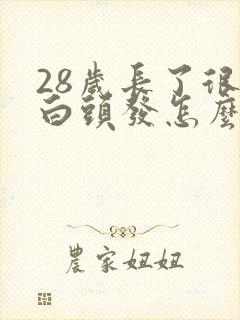 28歲長了很
白頭發怎麼
農家妞妞